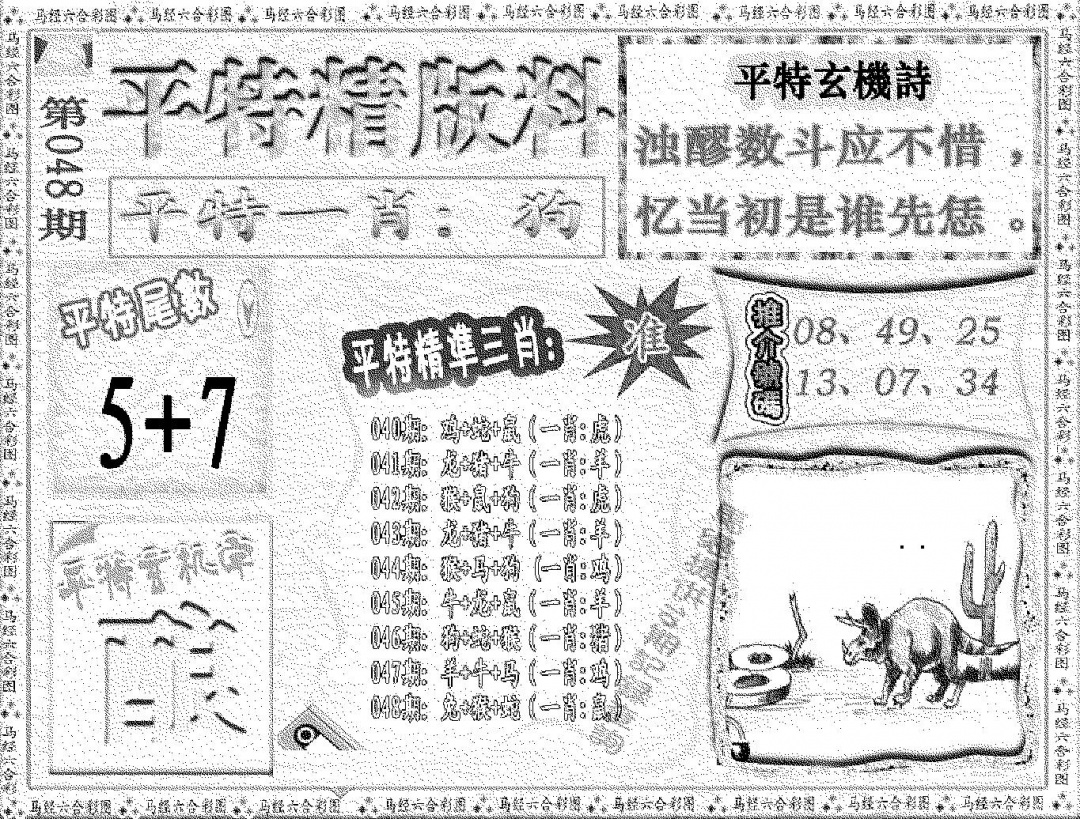 马经六合彩图 马经六合彩图 马经六合彩图 马经六合彩图 马经六合彩图 马经六合彩图 马经六合彩图 马经六合彩图 马经六合彩图
第048期
平特精版料
平特一肖：狗
平特玄機詩
浊醪数斗应不惜，
忆当初是谁先恁。
平特尾数
5+7
平特玄机字
平特精準三肖:
准
040期: 鸡+蛇+鼠 (一肖:虎)
041期: 龙+猪+牛 (一肖:羊)
042期: 猴+鼠+狗 (一肖:虎)
043期: 龙+猪+牛 (一肖:羊)
044期: 猴+马+狗 (一肖:鸡)
045期: 牛+龙+鼠 (一肖:羊)
046期: 狗+蛇+猴 (一肖:猪)
047期: 羊+牛+马 (一肖:鸡)
048期: 兔+猴+蛇 (一肖:鼠)
推介號碼
08、49、25
13、07、34
马经六合彩图 马经六合彩图 马经六合彩图 马经六合彩图 马经六合彩图 马经六合彩图 马经六合彩图 马经六合彩图 马经六合彩图